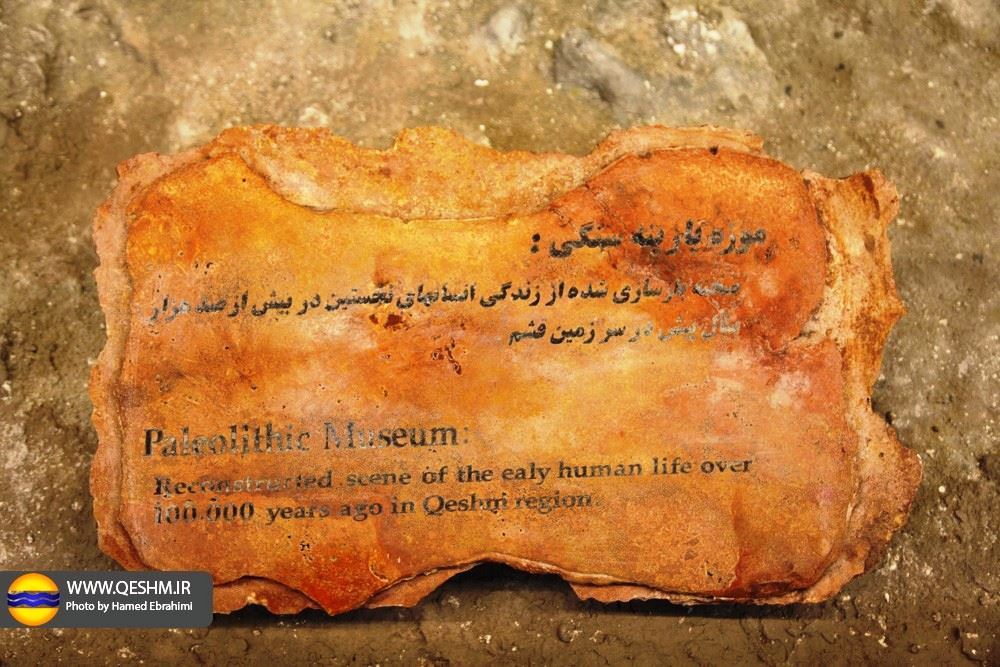 موزه پارینه سنگی :
صحنه بازسازی شده از زندگی انسانهای نخستین در بیش از صد هزار
سال پیش در سر زمین قشم
Paleolithic Museum:
Reconstructed scene of the ealy human life over
100.000 years ago in Qeshm region.
WWW.QESHM.IR
Photo by Hamed Ebrahimi